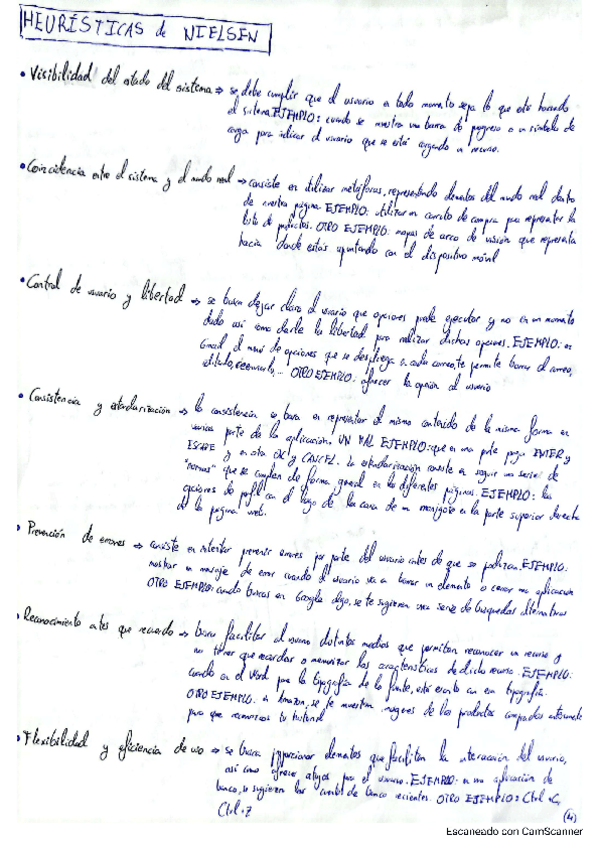 HEURÍSTICAS de NIELSEN
• Visibilidad del estado del sistema → se debe cumplir que el usuario a todo momento sepa lo que está haciendo
el sistema. EJEMPLO: cuando se muestra una barra de progreso o un símbolo de
carga para indicar al usuario que se está cargando un recurso.
• Coincidencia entre el sistema y el mundo real → consiste en utilizar metáforas, representando elementos del mundo real dentro
de nuestra página EJEMPLO: utilizar un carrito de compra para representar la
lista de productos. OTRO EJEMPLO: mapas de arco de visión que representa
hacia donde estás apuntando con el dispositivo móvil
• Control de usuario y libertad → se busca dejar claro al usuario que opciones puede ejecutar y no en un momento
dado así como darle la libertad para realizar dichas opciones. EJEMPLO: en
Gmail el menú de opciones que se despliega en cada correo, te permite borrar el correo,
reenviarlo, ... OTRO EJEMPLO: ofrecer la opción al usuario
• Consistencia y estandarización → la consistencia se basa en representar el mismo contenido de la misma forma en
varias parte de la aplicación. UN MAL EJEMPLO: que en una parte ponga ENTER y
ESCAPE y en otra OK y CANCEL. La estandarización consiste en seguir una serie de
"normas" que se cumplen de forma general en las diferentes páginas. EJEMPLO: las
opciones de perfil con el logo de la cara de un monigote en la parte superior derecha
de la página web.
• Prevención de errores → consiste en intentar prevenir errores por parte del usuario antes de que se produzcan. EJEMPLO:
mostrar un mensaje de error cuando el usuario va a borrar un elemento o cerrar una aplicación
OTRO EJEMPLO: cuando buscas en Google algo, se te sugieren una serie de búsquedas alternativas
• Reconocimiento antes que recuerdo → busca facilitar al usuario distintos medios que permitan reconocer un recurso y
no tener que recordar o memorizar las características de dicho recurso. EJEMPLO:
cuando en el Word pone la tipografía de la fuente, está escrito con esa tipografía.
OTRO EJEMPLO: en Amazon, se te muestran imágenes de los productos comprados
para que reconozcas tu historial
• Flexibilidad y eficiencia de uso → se busca proporcionar elementos que faciliten la interacción del usuario,
así como ofrecer atajos para el usuario. EJEMPLO: en una aplicación de
banco, se sugieren las cuentas de banco recientes. OTRO EJEMPLO: Ctrl+C,
Ctrl+Z
(4)
Escaneado con CamScanner